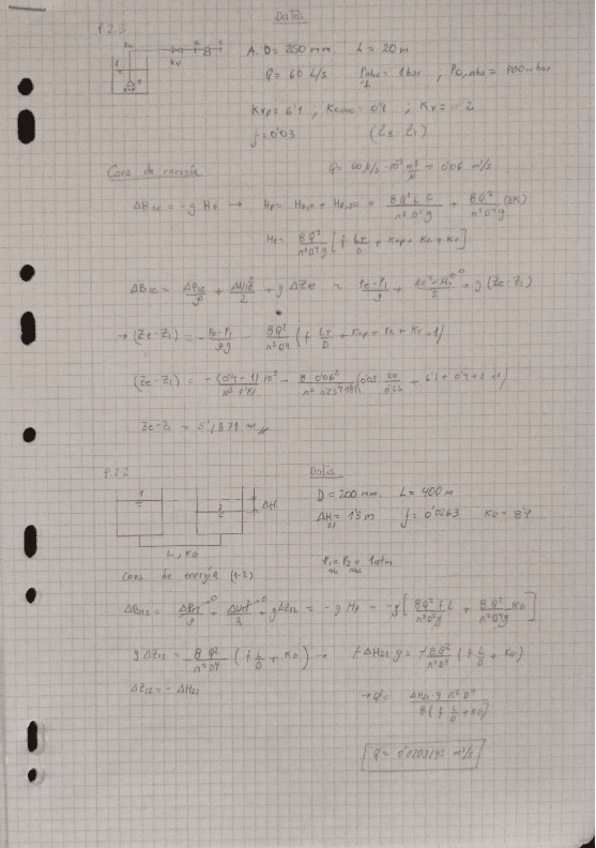 Datos
P.2.3
A. D = 250 mm L = 20 m
Q = 60 L/s Pabs1 = 1 bar , Pe,abs = 400 mbar
Kvp = 6'1 ; Kcodo = 0'4 ; Kv = 2
f = 0'03 (Ze - Z1)
Cons de energía
Q = 60 L/s · 10⁻³ m³/L = 0'06 m³/s
ΔB1e = -g Hp → Hp = + = 8Q² L f / π² D⁵ g + 8Q² / π² D⁴ g (ΣK)
Hp = 8Q² / π² D⁴ g [ f LT / D + Kvp + Kc + Kv ]
ΔB1e = ΔP1e / ρ + / 2 + g ΔZ1e = Pe - P1 / ρ + / 2 + g (Ze - Z1)
→ (Ze - Z1) = - Pe - P1 / ρg - 8Q² / π² D⁴ ( f LT / D + Kvp + Kc + Kv + 1)
(Ze - Z1) = - (0'4 - 1) 10⁵ / 10³ 9'81 - 8 0'06² / π² 0'25⁴ 9'81 (0'03 20 / 0'25 + 6'1 + 0'4 + 2 + 1)
Ze - Z1 = 5'1871 m
P.2.2
Datos
1
2
ΔH
L, K0
D = 200 mm L = 400 m
ΔH21 = 1'3 m f = 0'0263 K0 = 8'1
P1 = P2 = 1 atm
Cons de energía (1-2)
ΔB12 = + + g ΔZ12 = - g Hp = - g [ 8Q² f L / π² D⁵ g + 8Q² / π² D⁴ g K0 ]
g ΔZ12 = 8 Q² / π² D⁴ ( f L / D + K0 ) → ΔH21 g = 8Q² / π² D⁴ ( f L / D + K0 )
ΔZ12 = - ΔH21
→ Q² = ΔH21 · g π² D⁴ / 8 ( f L / D + K0 )